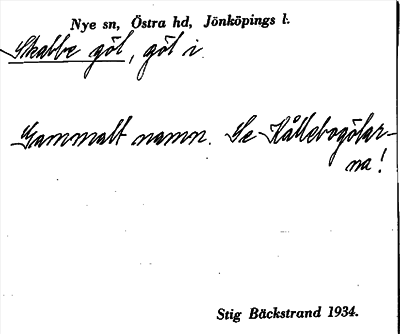 Nye sn, Östra hd, Jönköpings l.
Skabbe göl, göl i
Gammalt namn. Se Hållebogölar-
na!
Stig Bäckstrand 1934.